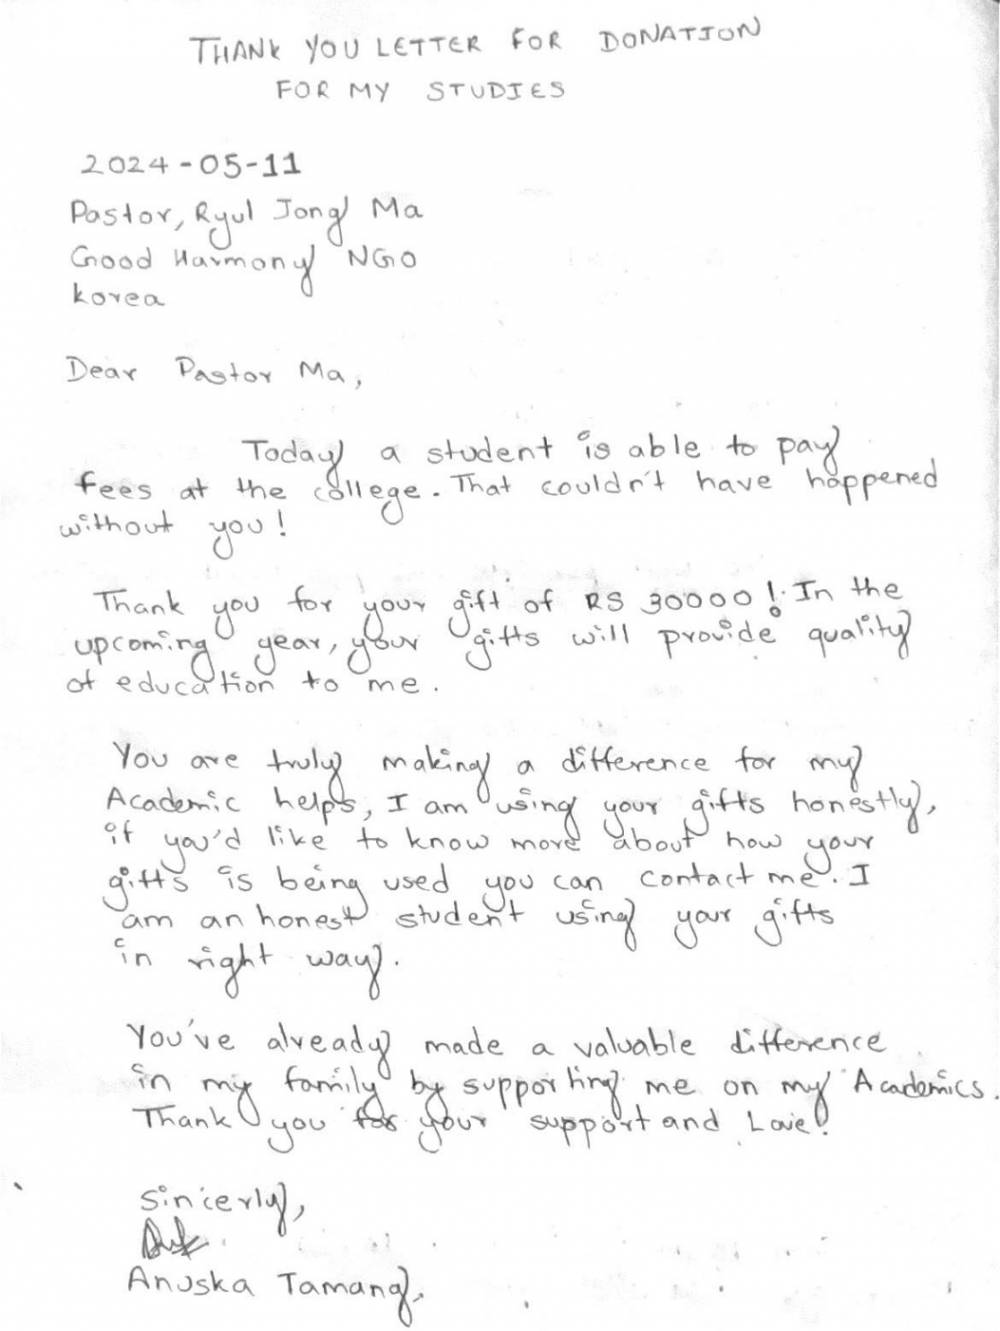 THANK YOU LETTER FOR DONATION
FOR MY STUDIES
2024-05-11
Pastor, Ryul Jong Ma
Good Harmony NGO
Korea
Dear Pastor Ma,
Today a student is able to pay
fees at the college. That couldn't have happened
without you!
Thank you for your gift of RS 30000! In the
upcoming year, your gifts will provide quality
of education to me.
You are truly making a difference for my
Academic helps, I am using your gifts honestly,
if you'd like to know more about how your
gifts is being used you can contact me. I
am an honest student using your gifts
in right way.
You've already made a valuable difference
in my family by supporting me on my Academics.
Thank you for your support and Love!
Sincerly,
Anuska Tamang,